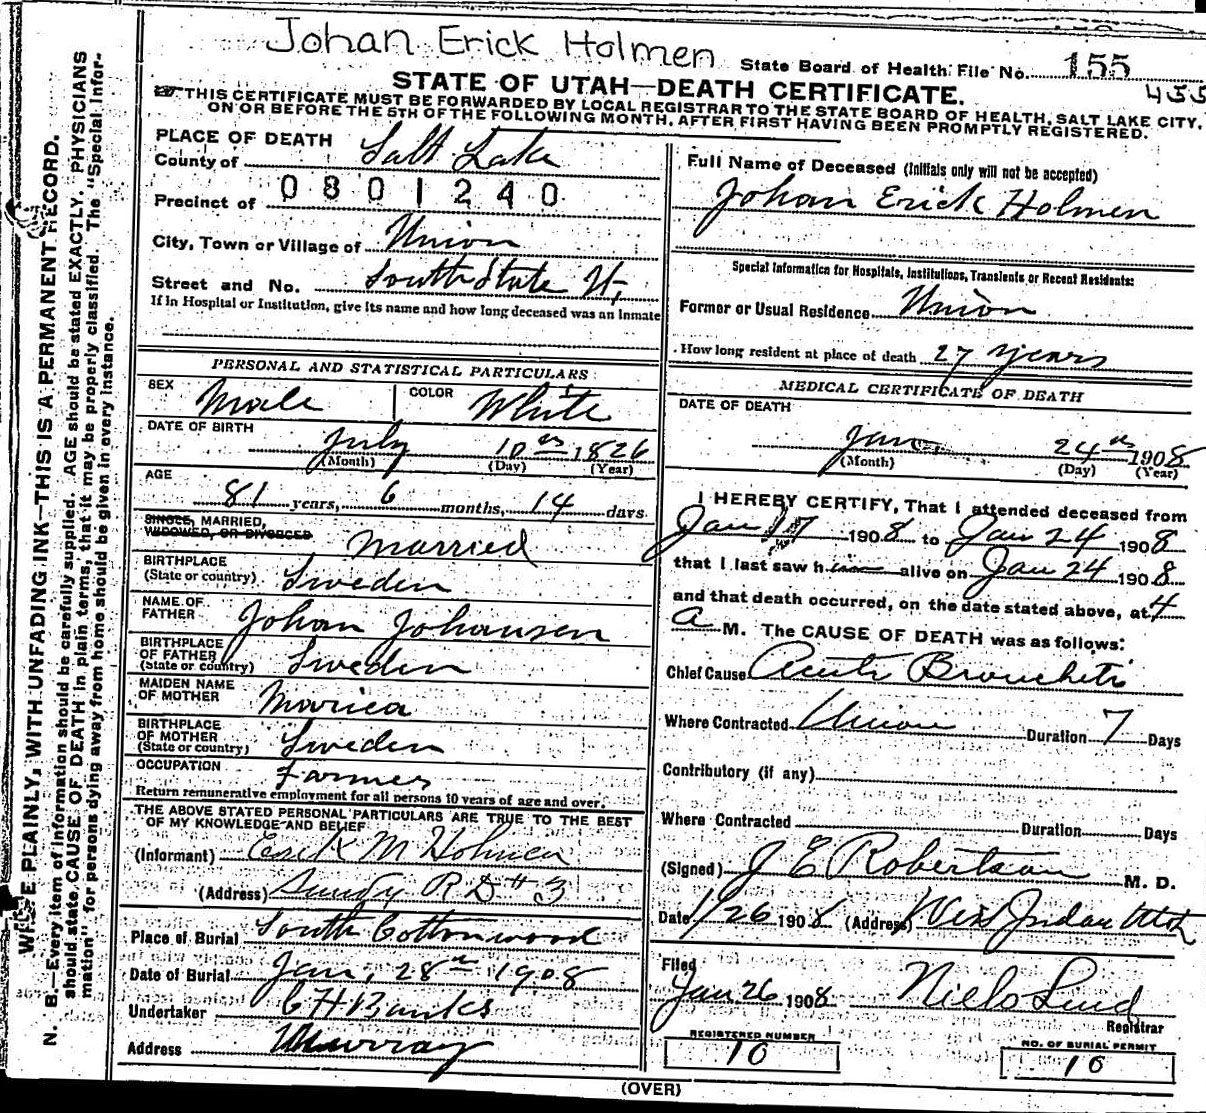 Johan Erick Holmen
State Board of Health File No. 155
STATE OF UTAH—DEATH CERTIFICATE.
455
THIS CERTIFICATE MUST BE FORWARDED BY LOCAL REGISTRAR TO THE STATE BOARD OF HEALTH, SALT LAKE CITY,
ON OR BEFORE THE 5TH OF THE FOLLOWING MONTH, AFTER FIRST HAVING BEEN PROMPTLY REGISTERED.
N. B.—Every item of information should be carefully supplied. AGE should be stated EXACTLY. PHYSICIANS
should state CAUSE OF DEATH in plain terms, that it may be properly classified. The "Special Infor-
mation" for persons dying away from home should be given in every instance.
WRITE PLAINLY, WITH UNFADING INK—THIS IS A PERMANENT RECORD.
PLACE OF DEATH
County of Salt Lake
0801240
Precinct of
City, Town or Village of Union
Street and No. South State St,
If in Hospital or Institution, give its name and how long deceased was an Inmate
PERSONAL AND STATISTICAL PARTICULARS
SEX Male COLOR White
DATE OF BIRTH
July 10th 1826
(Month) (Day) (Year)
AGE
81 years, 6 months, 14 days
SINGLE, MARRIED,
WIDOWED, OR DIVORCED Married
BIRTHPLACE
(State or country) Sweden
NAME OF
FATHER Johan Johansen
BIRTHPLACE
OF FATHER
(State or country) Sweden
MAIDEN NAME
OF MOTHER Marica
BIRTHPLACE
OF MOTHER
(State or country) Sweden
OCCUPATION Farmer
Return remunerative employment for all persons 10 years of age and over.
THE ABOVE STATED PERSONAL PARTICULARS ARE TRUE TO THE BEST
OF MY KNOWLEDGE AND BELIEF
(Informant) Erick M Holmen
(Address) Sandy R D # 3
Place of Burial South Cottonwood
Date of Burial Jan, 28th 1908
Undertaker Banks
Address Murray
Full Name of Deceased (Initials only will not be accepted)
Johan Erick Holmen
Special Information for Hospitals, Institutions, Transients or Recent Residents:
Former or Usual Residence Union
How long resident at place of death 27 years
MEDICAL CERTIFICATE OF DEATH
DATE OF DEATH
Jan. 24th 1908
(Month) (Day) (Year)
I HEREBY CERTIFY, That I attended deceased from
Jan 17 1908 to Jan 24 1908
that I last saw him alive on Jan 24 1908
and that death occurred, on the date stated above, at 4
a M. The CAUSE OF DEATH was as follows:
Chief Cause Acute Bronchitis
Where Contracted Union Duration 7 Days
Contributory (if any)
Where Contracted Duration Days
(Signed) J E Robertson M. D.
Date 1/26 1908 (Address) West Jordan Utah
Filed
Jan 26 1908 Niels Lind
Registrar
REGISTERED NUMBER
10
NO. OF BURIAL PERMIT
10
(OVER)